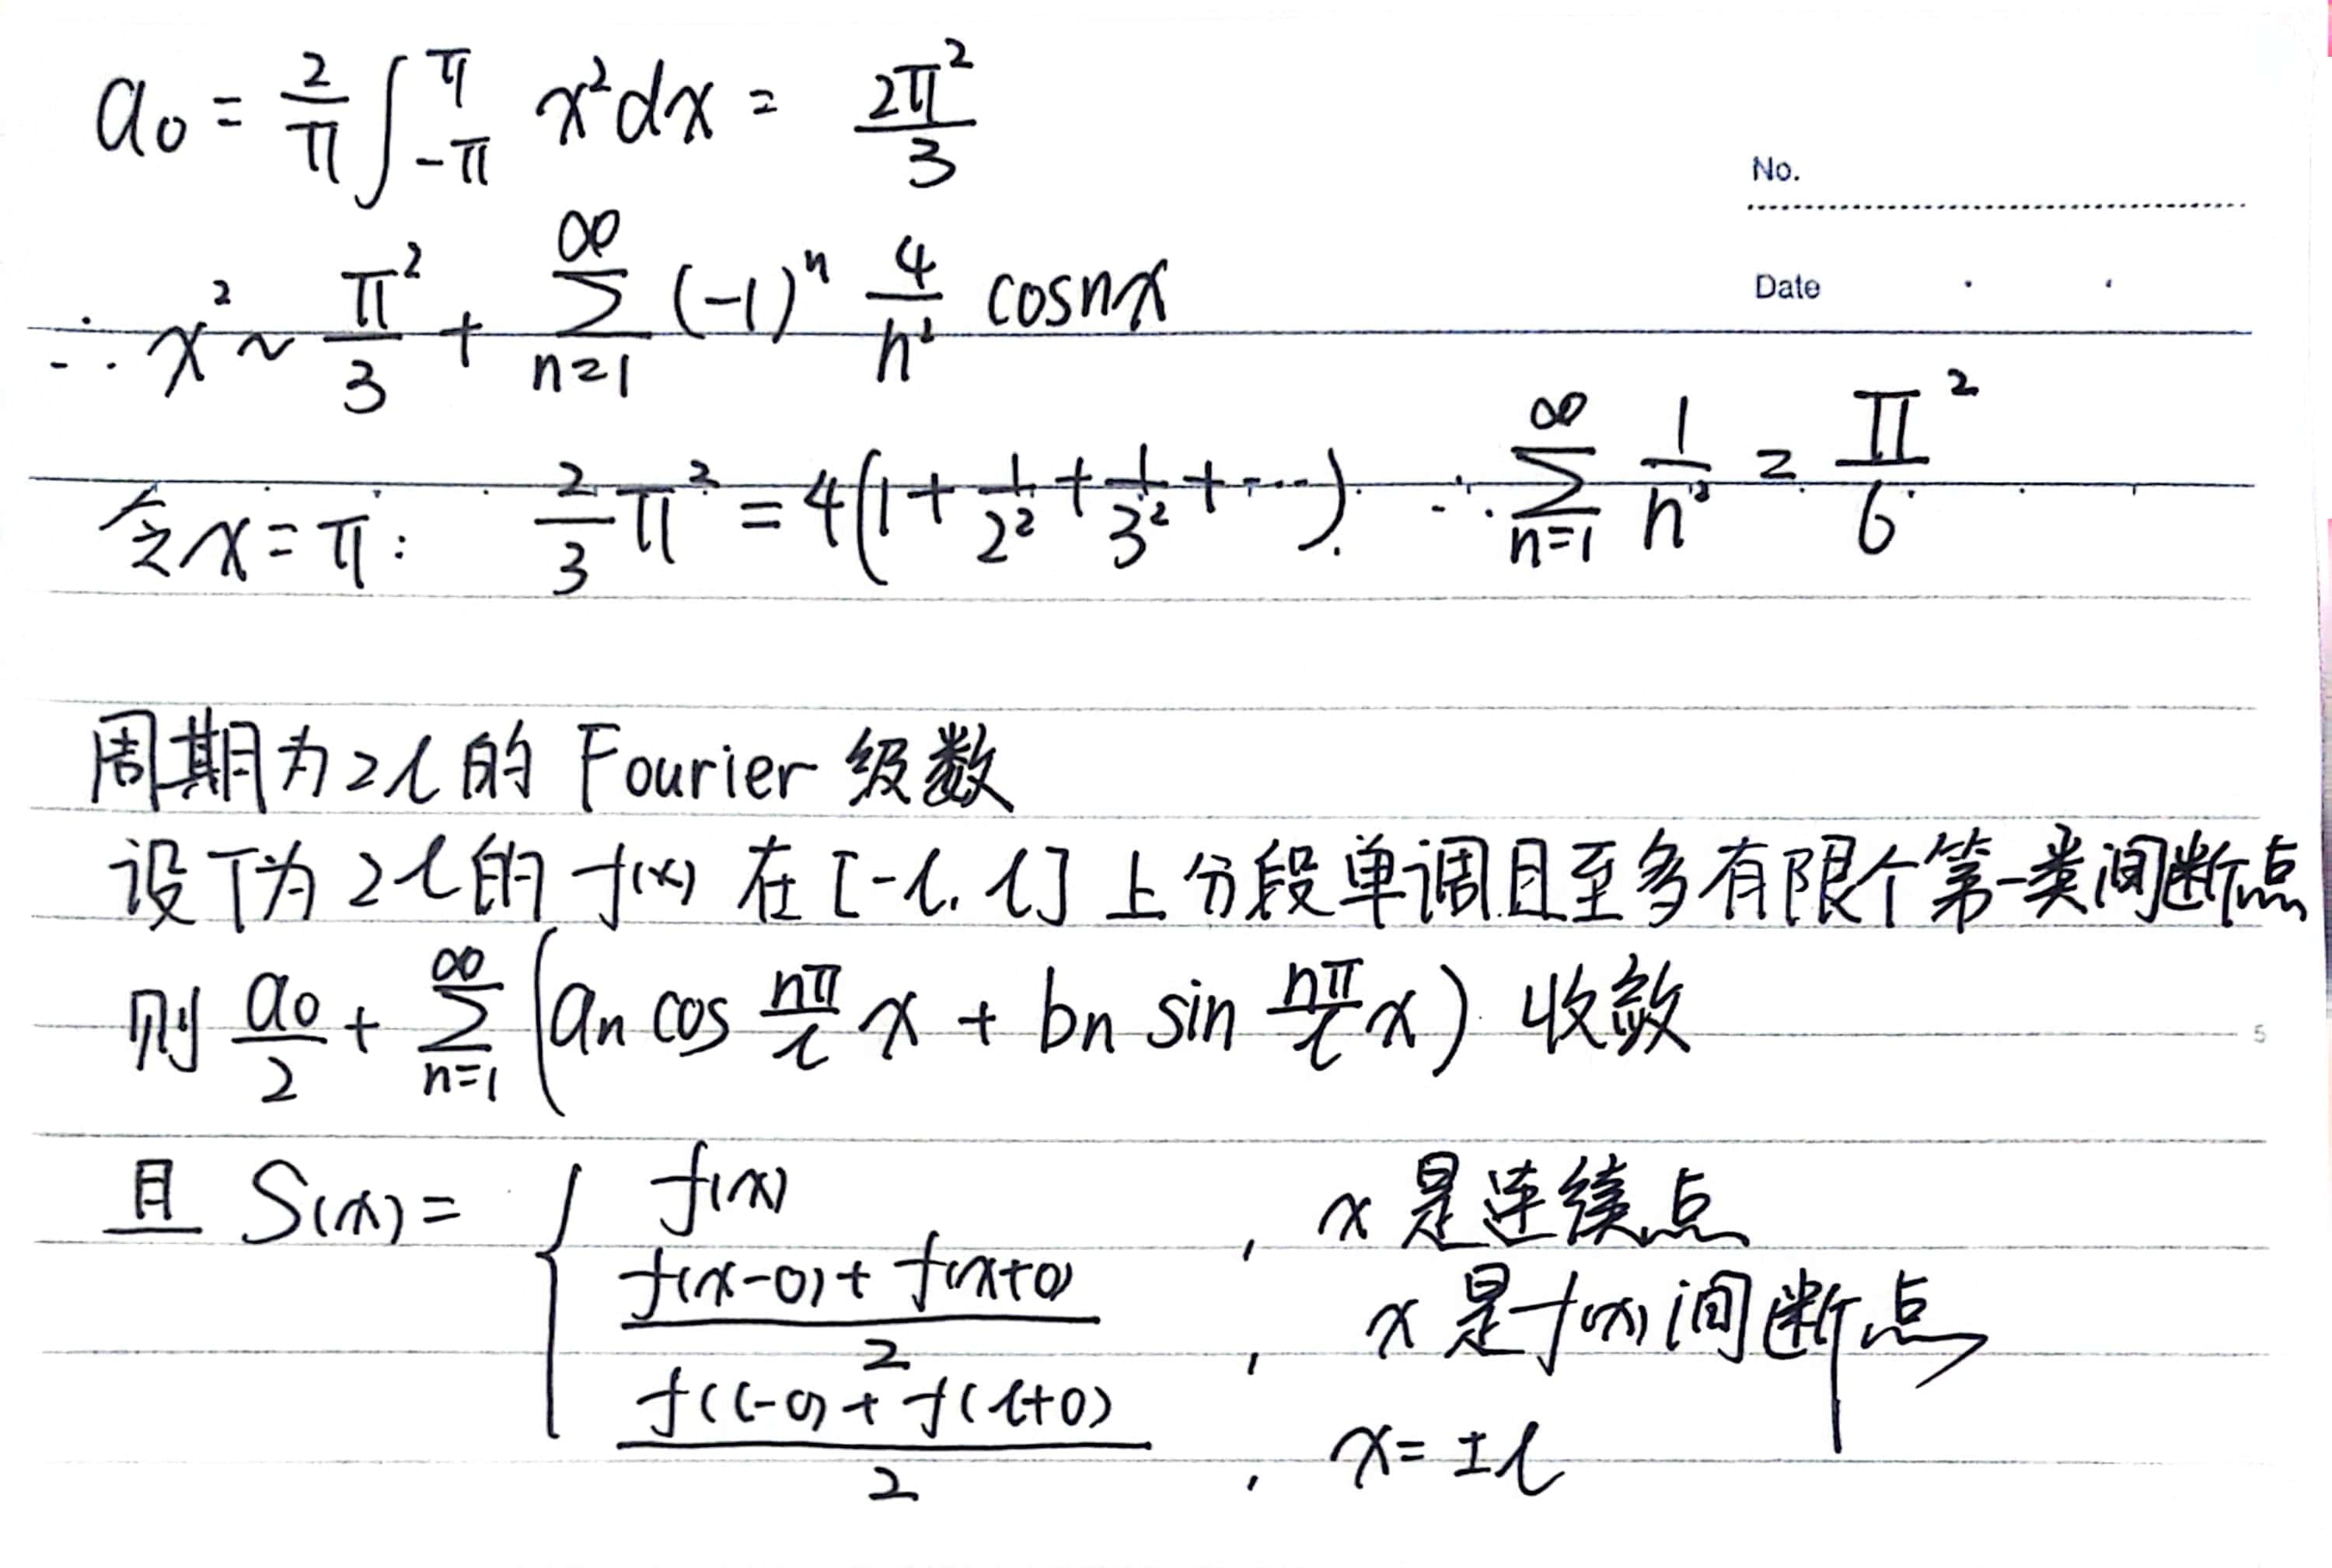 a₀ = 2/π ∫_{-π}^{π} x²dx = 2π²/3
No.
Date
∴ x² ~ π²/3 + ∑_{n=1}^{∞} (-1)ⁿ 4/n² cosnx
令x=π: 2/3 π² = 4(1 + 1/2² + 1/3² + ⋯). ∴ ∑_{n=1}^{∞} 1/n² = π²/6
周期为2l的 Fourier 级数
设T为2l的f(x)在[-l, l]上分段单调且至多有限个第一类间断点
则 a₀/2 + ∑_{n=1}^{∞} (aₙ cos nπ/l x + bₙ sin nπ/l x) 收敛
5
且 S(x) = { f(x) , x是连续点
(f(x-0) + f(x+0))/2 , x是f(x)间断点
(f(l-0) + f(l+0))/2 , x = ±l